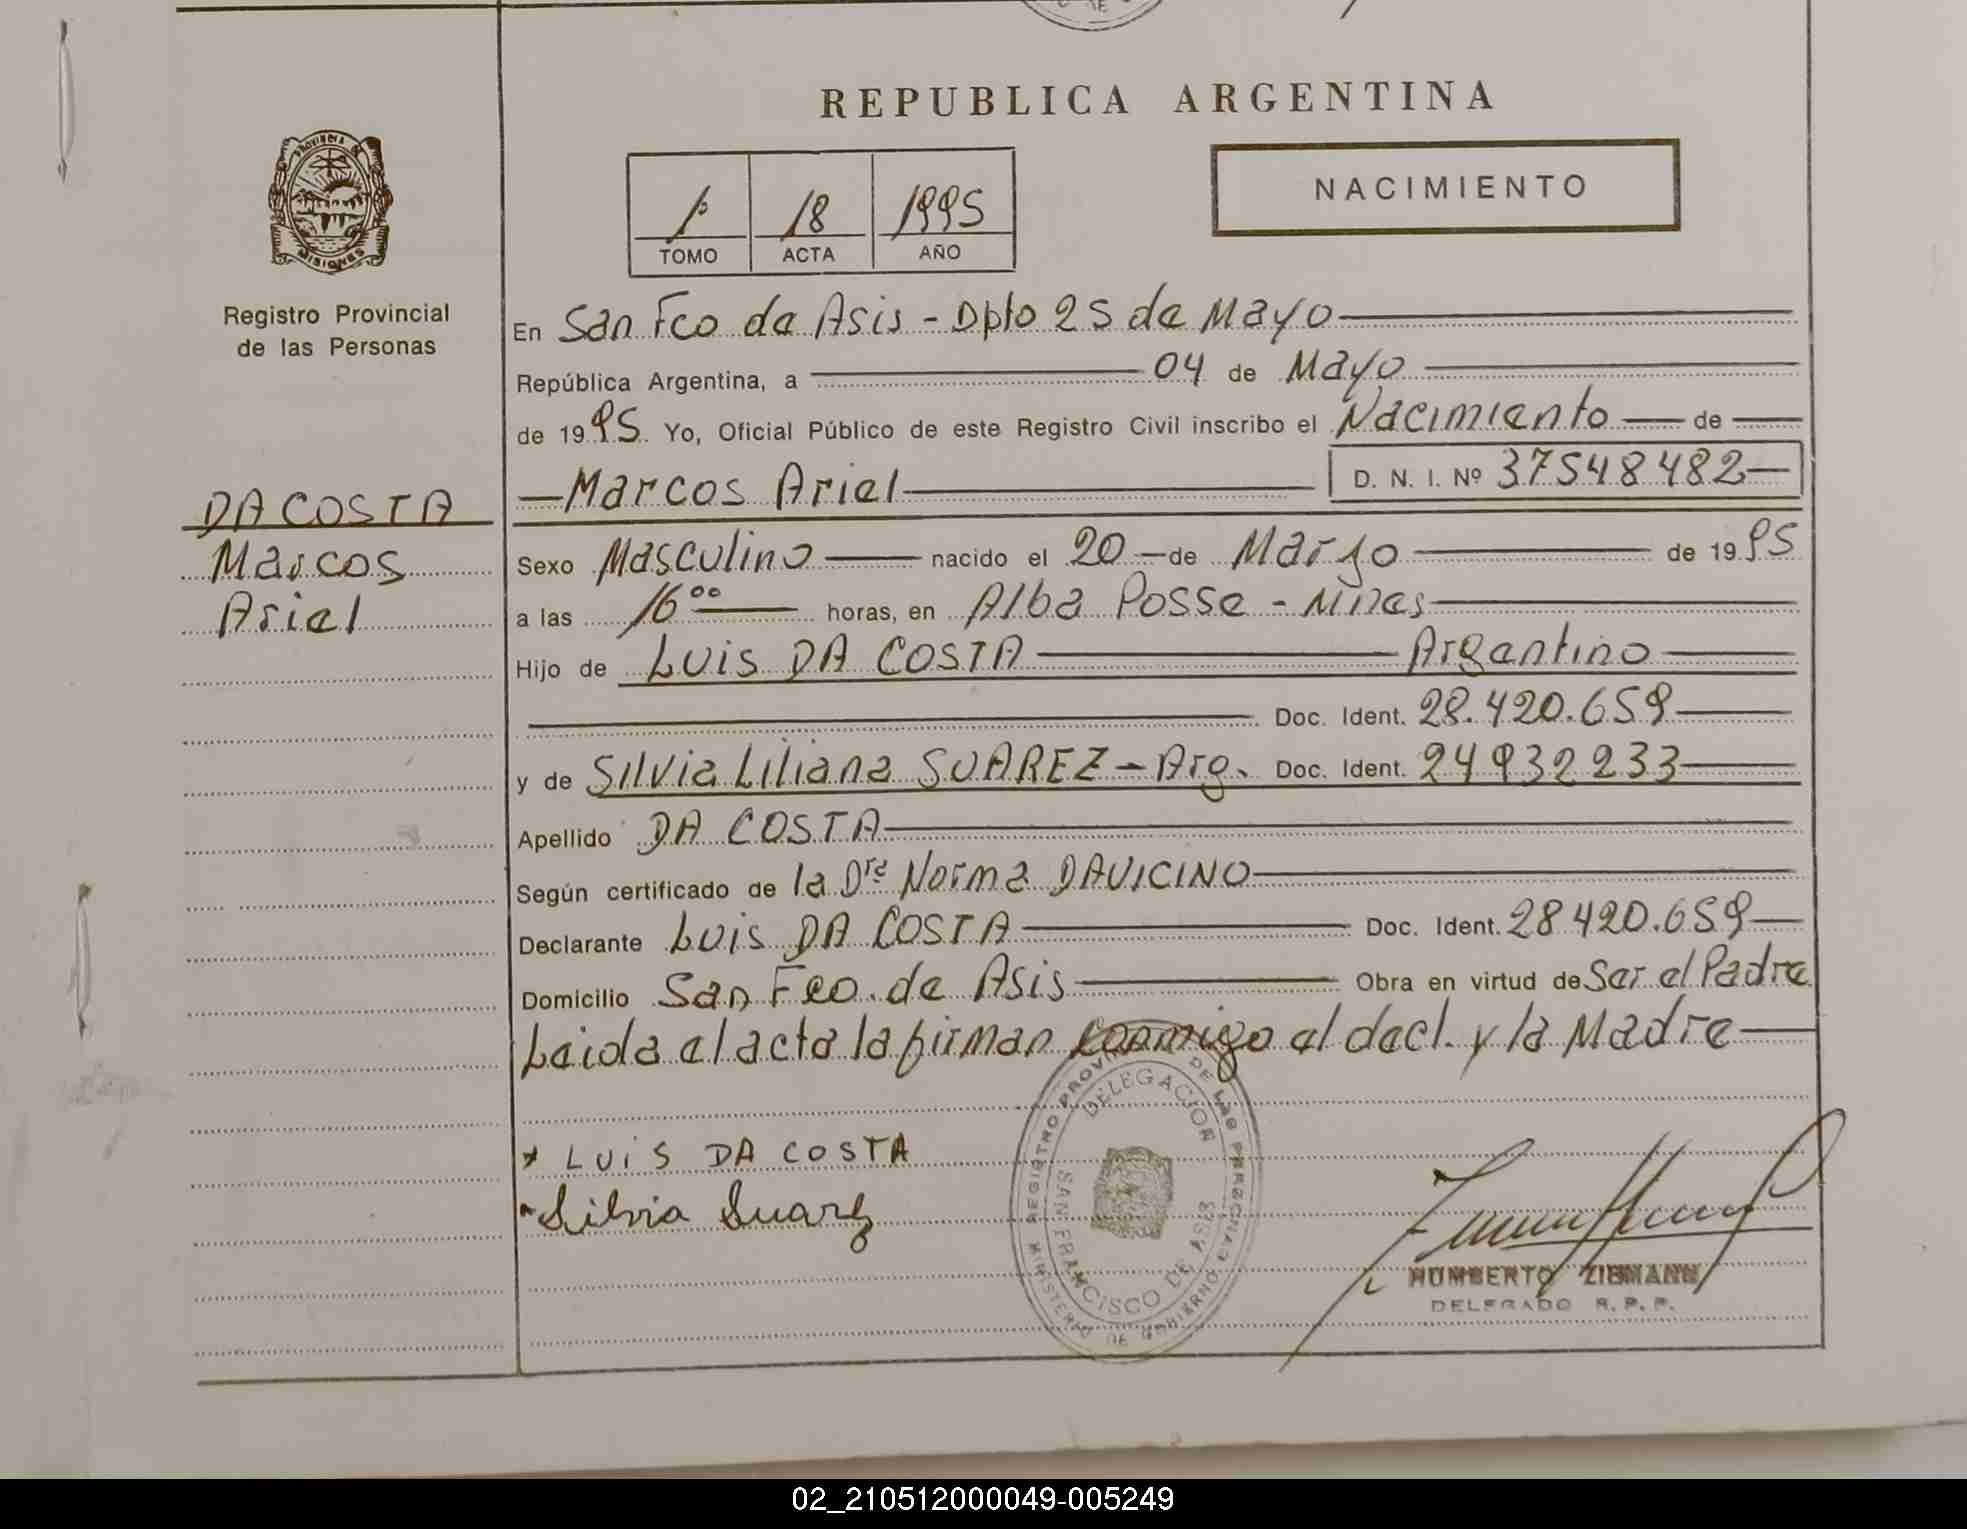 REPUBLICA ARGENTINA
NACIMIENTO
1º 18 1995
TOMO ACTA AÑO
PROVINCIA DE
MISIONES
Registro Provincial
de las Personas
DA COSTA
Marcos
Ariel
En San Fco de Asis - Dpto 25 de Mayo
República Argentina, a 04 de Mayo
de 1995 Yo, Oficial Público de este Registro Civil inscribo el Nacimiento de
Marcos Ariel D. N. I. Nº 37548482
Sexo Masculino nacido el 20 de Marzo de 1995
a las 16 00 horas, en Alba Posse - Mnes
Hijo de Luis DA COSTA Argentino
Doc. Ident. 28.420.659
y de Silvia Liliana SUAREZ - Arg. Doc. Ident. 24932233
Apellido DA COSTA
Según certificado de la Dra Norma DAVICINO
Declarante Luis DA COSTA Doc. Ident. 28420.659
Domicilio San Fco. de Asis Obra en virtud de Ser el Padre
Leida el acta la firman conmigo el decl. y la Madre
LUiS DA COSTA
Silvia Suarez
REGISTRO PROVINCIAL DE LAS PERSONAS
MINISTERIO DE GOBIERNO
DELEGACION
SAN FRANCISCO DE ASIS
HUMBERTO ZIEMANN
DELEGADO R. P. P.
02_210512000049-005249